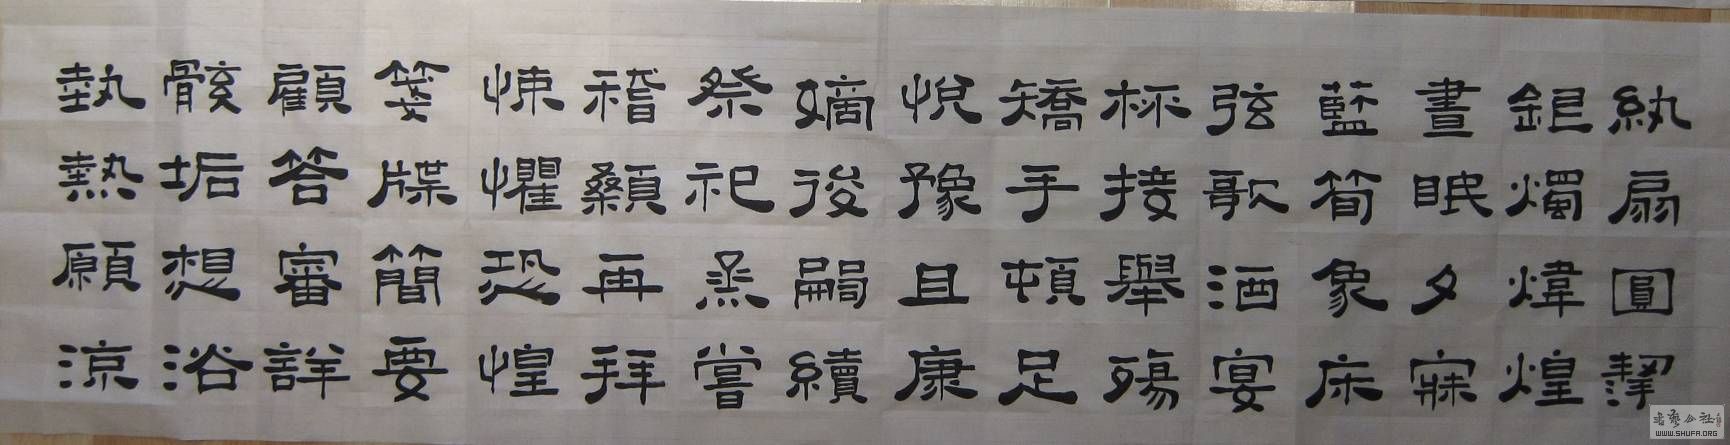 紈扇圓挈
銀燭煒煌
晝眠夕寐
藍筍象床
弦歌酒宴
杯接舉殤
矯手頓足
悅豫且康
嫡後嗣續
祭祀烝嘗
稽顙再拜
悚懼恐惶
箋牒簡要
顧答審詳
骸垢想浴
執熱願涼
WWW.SHUFA.ORG